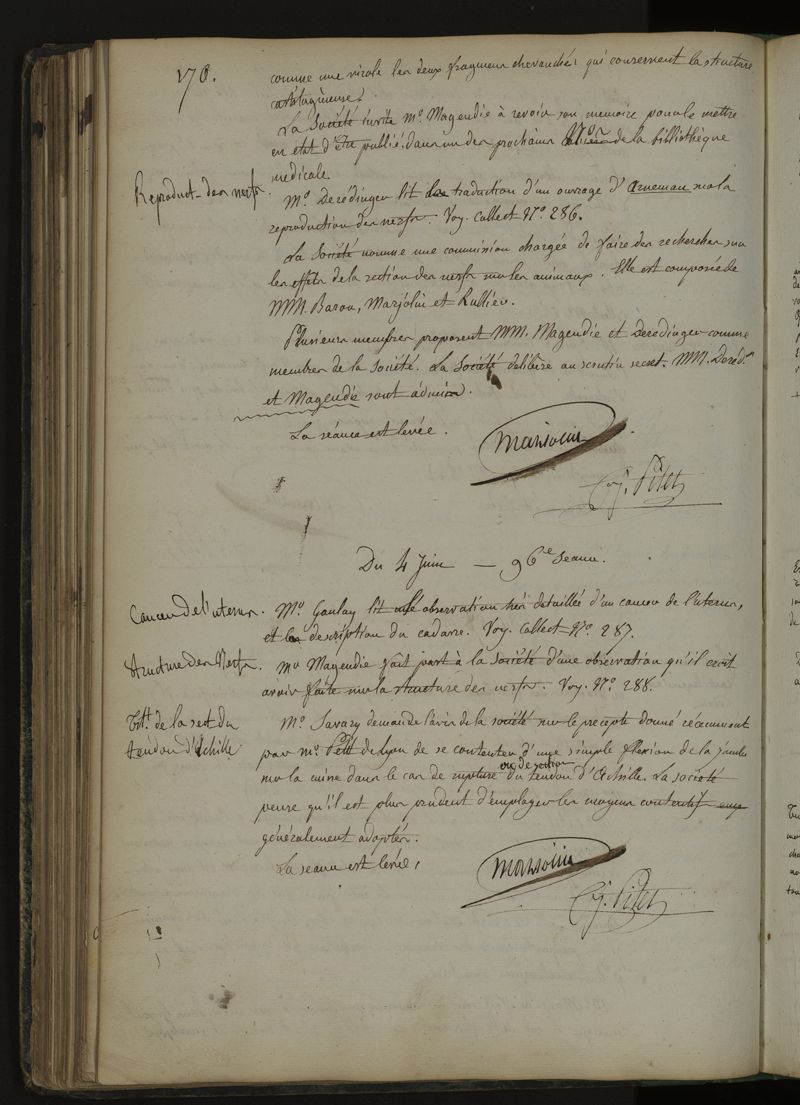 170.
comme une virole les deux fragmens chevauchés qui conservent la structure
cartilagineuse.
La Société invite Mr. Magendie à revoir son memoire pour le mettre
en état d'être publié, dans un des prochains de la bibliothèque
medicale.
Reproduct- des nerfs.
Mr. Deredinger lit la traduction d'un ouvrage d'Arneman sur la
reproduction des nerfs. Voy. Collect No. 286.
La Société nomme une commission chargée de faire des recherches sur
les effets de la section des nerfs sur les animaux. Elle est composée de
MM. Baron, Marjolin et Rullier.
Plusieurs membres proposent MM. Magendie et Deredinger comme
membres de la société. La Société délibère au scrutin secret. MM. Dered.
et Magendie sont admis.
La séance est levée.
Marjolin
Cy. Pitet
Du 4 Juin — 96e Seance.
Cancer de l'uterus.
Mr. Gaulay lit une observation très détaillée d'un cancer de l'uterus,
et la description du cadavre. Voy. Collect No. 287.
Structure des Nerfs.
Mr Magendie fait part à la société d'une observation qu'il croit
avoir faite sur la structure des nerfs. Voy. No. 288.
Ttt. de la sect du
tendon d'Achille
Mr. Savary demande l'avis de la société sur le precepte donné récemment
par Mr. Petit de Lyon de se contenter d'une simple flexion de la jambe
sur la cuisse dans le cas de rupture ou de section du tendon d'Achille. La société
pense qu'il est plus prudent d'employer les moyens contentifs
généralement adoptés.
La seance est levée,
Marjolin
Cy. Pitet